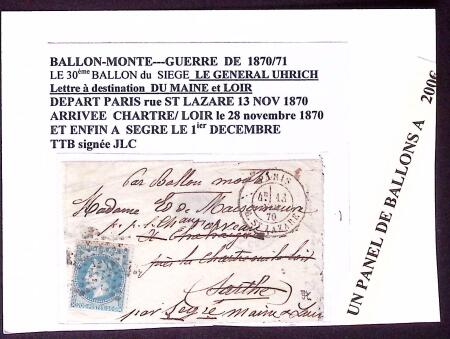 BALLON-MONTE---GUERRE DE 1870/71
LE 30ème BALLON du SIEGE LE GENERAL UHRICH
Lettre à destination DU MAINE et LOIR
DEPART PARIS rue ST LAZARE 13 NOV 1870
ARRIVEE CHARTRE/ LOIR le 28 novembre 1870
ET ENFIN A SEGRE LE 1ier DECEMBRE
TTB signée JLC
par Ballon monté
Madame Ed de Maisonneuve
près la Chartre sur le loir
Sarthe
par Segré Maine & Loire
PARIS
13
70
ST LAZARE
UN PANEL DE BALLONS A 200€